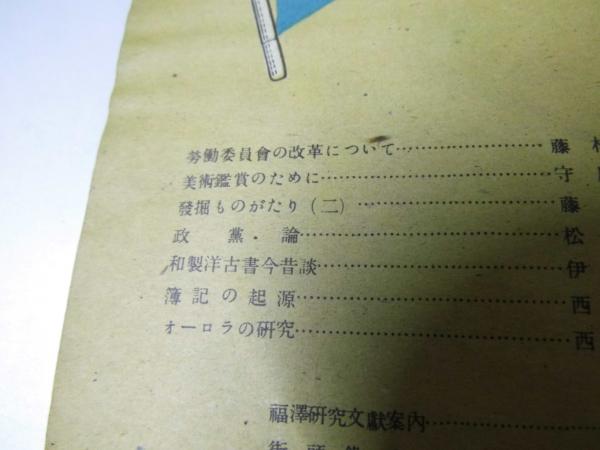 勞働委員會の改革について……………藤
美術鑑賞のために……………守
發掘ものがたり（二）……………藤
政黨・論……………松
和製洋古書今昔談……………伊
簿記の起源……………西
オーロラの研究……………西
福澤研究文獻案內……………
街頭